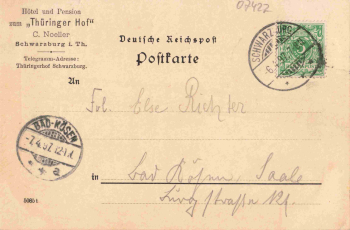 07422
Hôtel und Pension
zum „Thüringer Hof"
C. Noeller
Schwarzburg i. Th.
Telegramm-Adresse:
Thüringerhof Schwarzburg.
Deutsche Reichspost
Postkarte
SCHWARZBURG
An
Frl. Else Richter
BAD-KÖSEN
7.4.97.12-1N.
* * a
in Bad Kösen, Saale